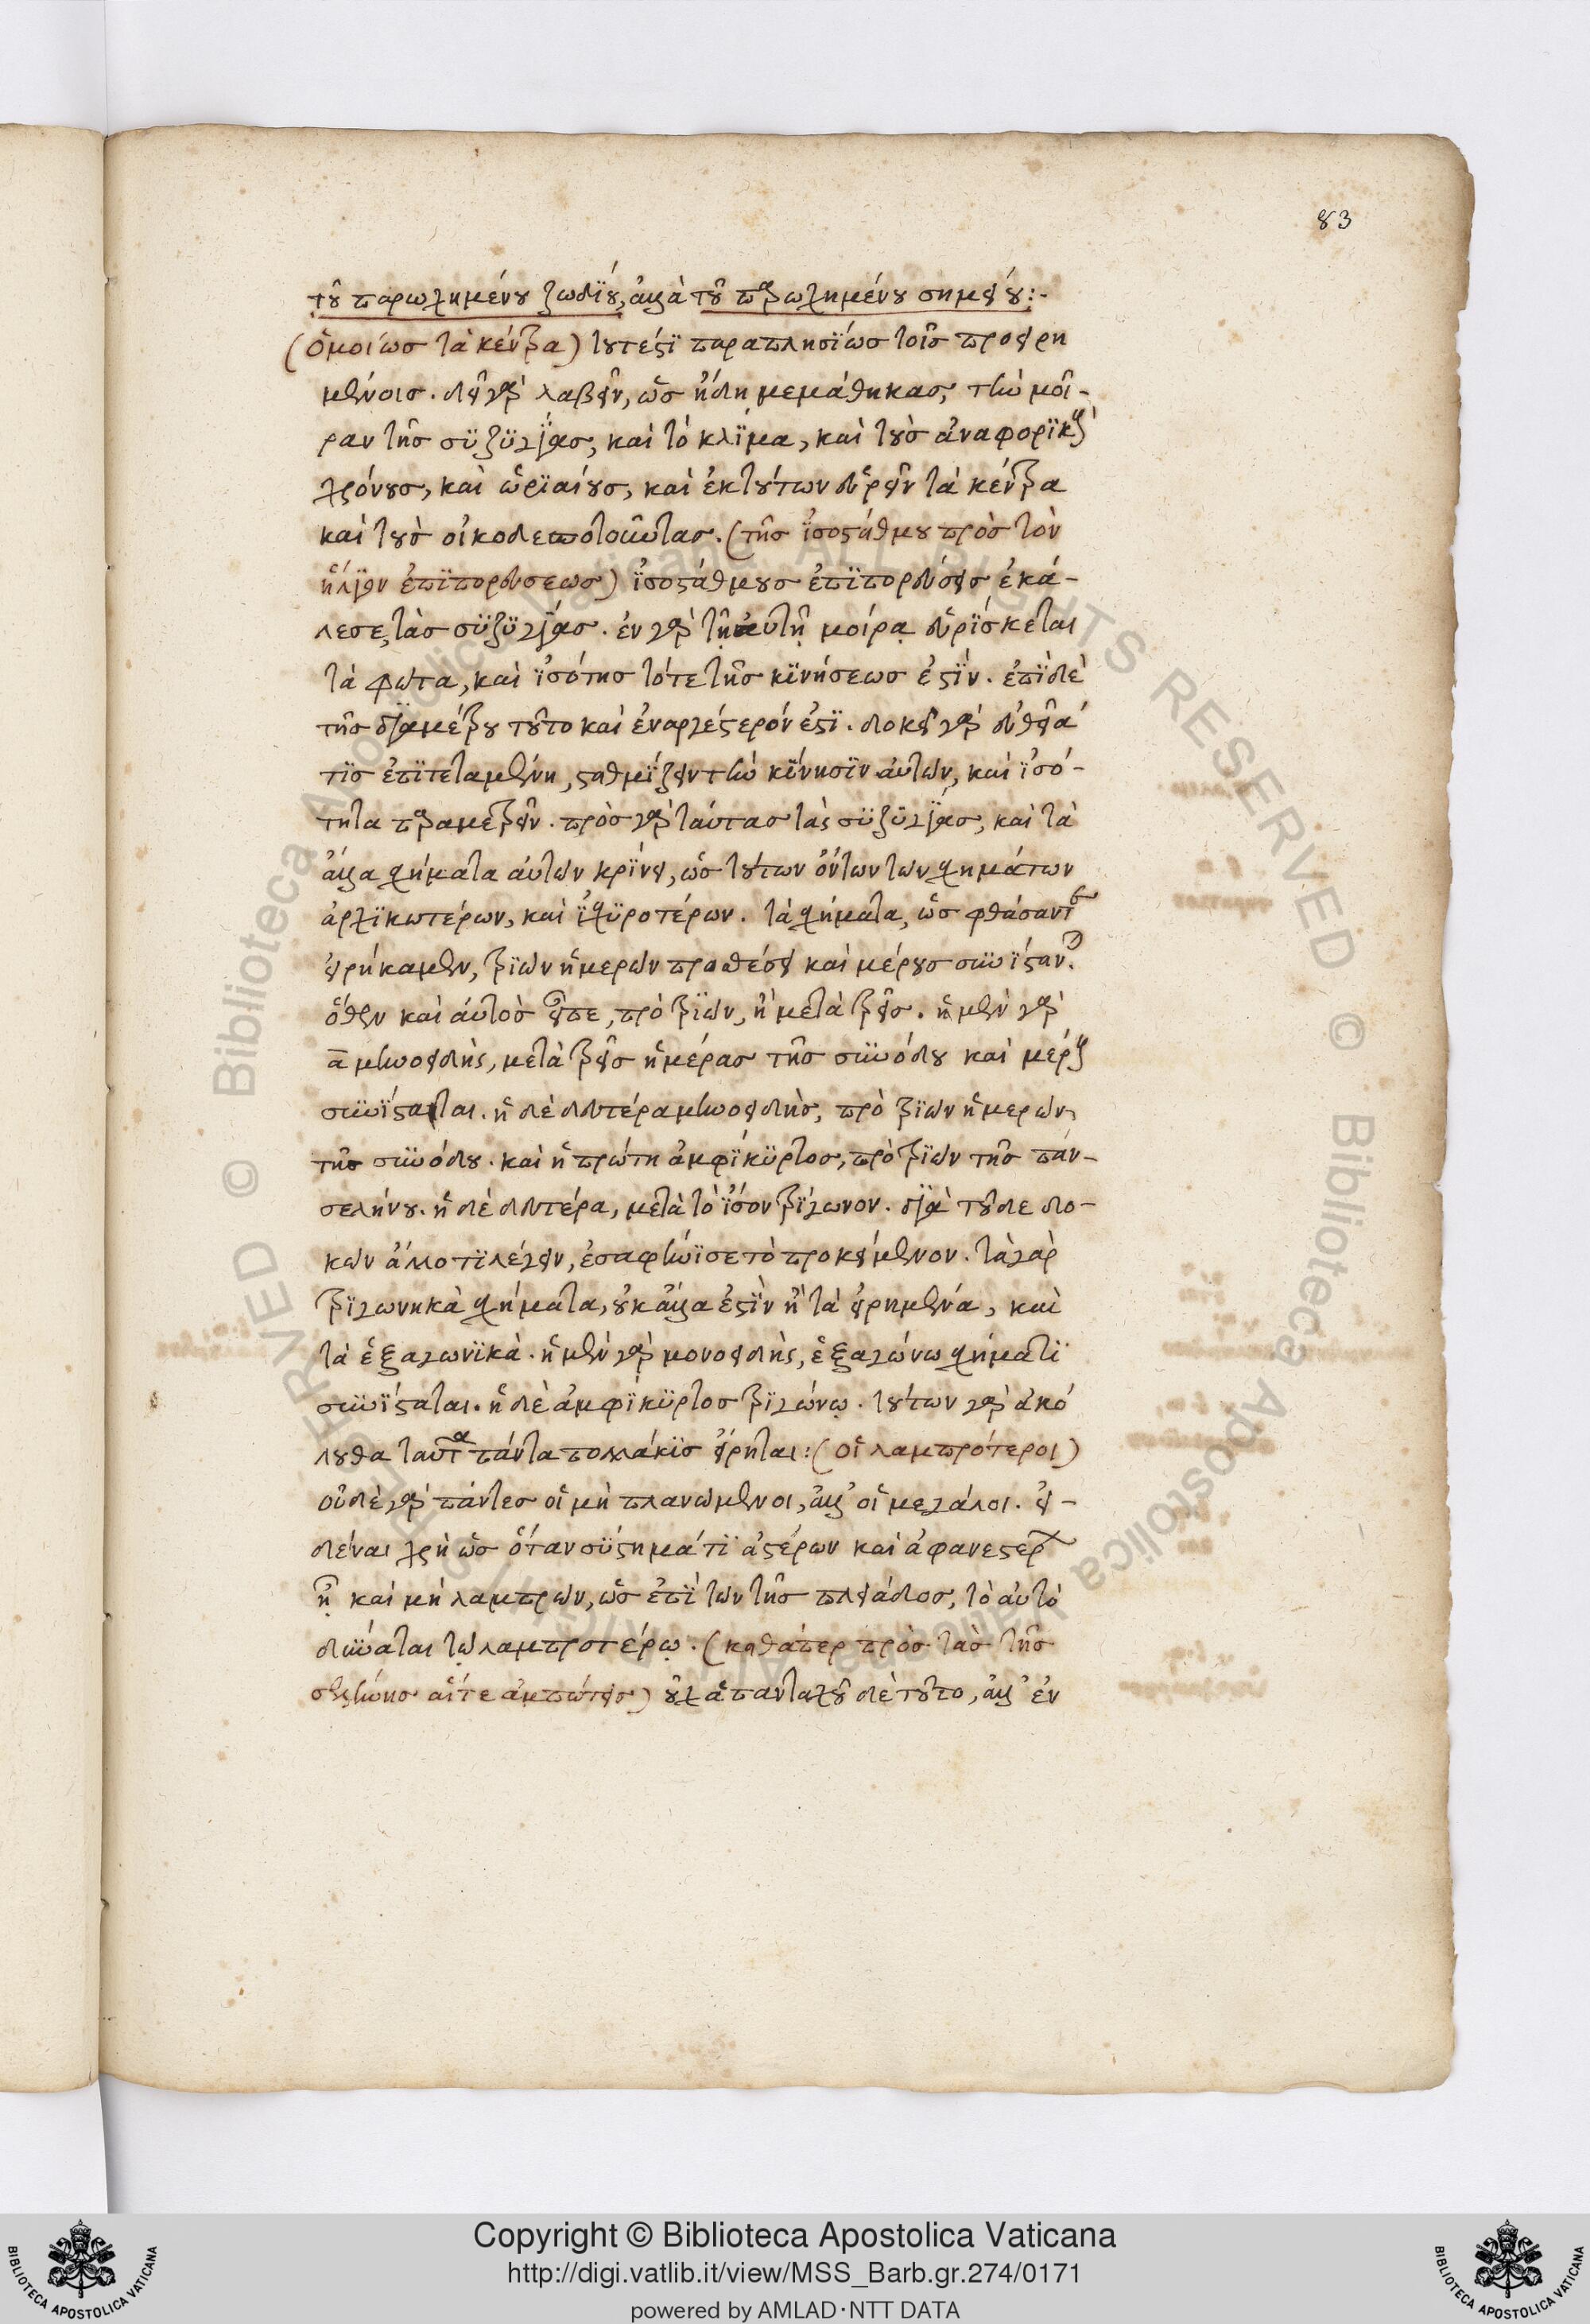 83
τοῦ παρῳχημένου ζωδίου, ἀλλὰ τοῦ παρῳχημένου σημείου:-
(ὁμοίως τὰ κέντρα) τουτέστι παραπλησίως τοῖς προειρη
μένοις. δεῖ γὰρ λαβεῖν, ὡς ἤδη μεμάθηκας, τὴν μοῖ-
ραν τῆς συζυγίας, καὶ τὸ κλίμα, καὶ τοὺς ἀναφορικοὺς
χρόνους, καὶ ὡριαίους, καὶ ἐκ τούτων εὑρεῖν τὰ κέντρα
καὶ τοὺς οἰκοδεσποτοῦντας. (τῆς ἰσοστάθμου πρὸς τὸν
ἥλιον ἐπιπορεύσεως) ἰσοστάθμους ἐπιπορεύσεις ἐκά-
λεσε, τὰς συζυγίας. ἐν γὰρ τῇ αὐτῇ μοίρᾳ εὑρίσκεται
τὰ φῶτα, καὶ ἰσότης τότε τῆς κινήσεως ἐστίν. ἐπὶ δὲ
τῆς διαμέτρου τοῦτο καὶ ἐναργέστερόν ἐστι. δοκεῖ γὰρ εὐθεῖά
τις ἐπιτεταμένη, σταθμίζειν τὴν κίνησιν αὐτῶν, καὶ ἰσό-
τητα παραμετρεῖν. πρὸς γὰρ ταύτας τὰς συζυγίας, καὶ τὰ
ἄλλα σχήματα αὐτῶν κρίνει, ὡς τούτων ὄντων τῶν σχημάτων
ἀρχικωτέρων, καὶ ἰσχυροτέρων. τὰ σχήματα, ὡς φθάσαντες
εἰρήκαμεν, τριῶν ἡμερῶν προθέσει καὶ μέρους συνίσταν.
ὅθεν καὶ αὐτὸς εἶπε, πρὸ τριῶν, ἢ μετὰ τρεῖς. ἡ μὲν γὰρ
α μηνοειδὴς, μετὰ τρεῖς ἡμέρας τῆς συνόδου καὶ μέρους
συνίσταται. ἡ δὲ δευτέρα μηνοειδὴς, πρὸ τριῶν ἡμερῶν,
τῆς συνόδου. καὶ ἡ πρώτη ἀμφίκυρτος, πρὸ τριῶν τῆς παν-
σελήνου. ἡ δὲ δευτέρα, μετὰ τὸ ἴσον τρίγωνον. διὰ τοῦδε δο-
κῶν ἄλλο τι λέγειν, ἐσαφήνισε τὸ προκείμενον. τὰ γὰρ
τριγωνηκὰ σχήματα, οὐκ ἄλλα ἐστὶν ἢ τὰ εἰρημένα, καὶ
τὰ ἑξαγωνικὰ. ἡ μὲν γὰρ μονοειδὴς, ἑξαγώνω σχήματι
συνίσταται. ἡ δὲ ἀμφίκυρτος τριγώνῳ. τούτων γὰρ ἀκό
λουθα ταῦτα πάντα πολλάκις εἴρηται: (οἱ λαμπρότεροι)
οὐδὲ γὰρ πάντες οἱ μὴ πλανώμενοι, ἀλλ' οἱ μεγάλοι. εἰ-
δέναι χρὴ ὡς ὅταν συστήματι ἀστέρων καὶ ἀφανεστέρων
ᾖ καὶ μὴ λαμπρῶν, ὡς ἐπὶ τῶν τῆς πλειάδος, τὸ αὐτὸ
δύναται τῷ λαμπροτέρῳ. (καθάπερ πρὸς τὰς τῆς
σελήνης αἵτε ἀμπώτεις) οὐχ ἁπανταχοῦ δὲ τοῦτο, ἀλλ' ἐν
© Biblioteca Apostolica Vaticana ALL RIGHTS RESERVED
Copyright © Biblioteca Apostolica Vaticana
http://digi.vatlib.it/view/MSS_Barb.gr.274/0171
powered by AMLAD·NTT DATA
BIBLIOTECA APOSTOLICA VATICANA
BIBLIOTECA APOSTOLICA VATICANA